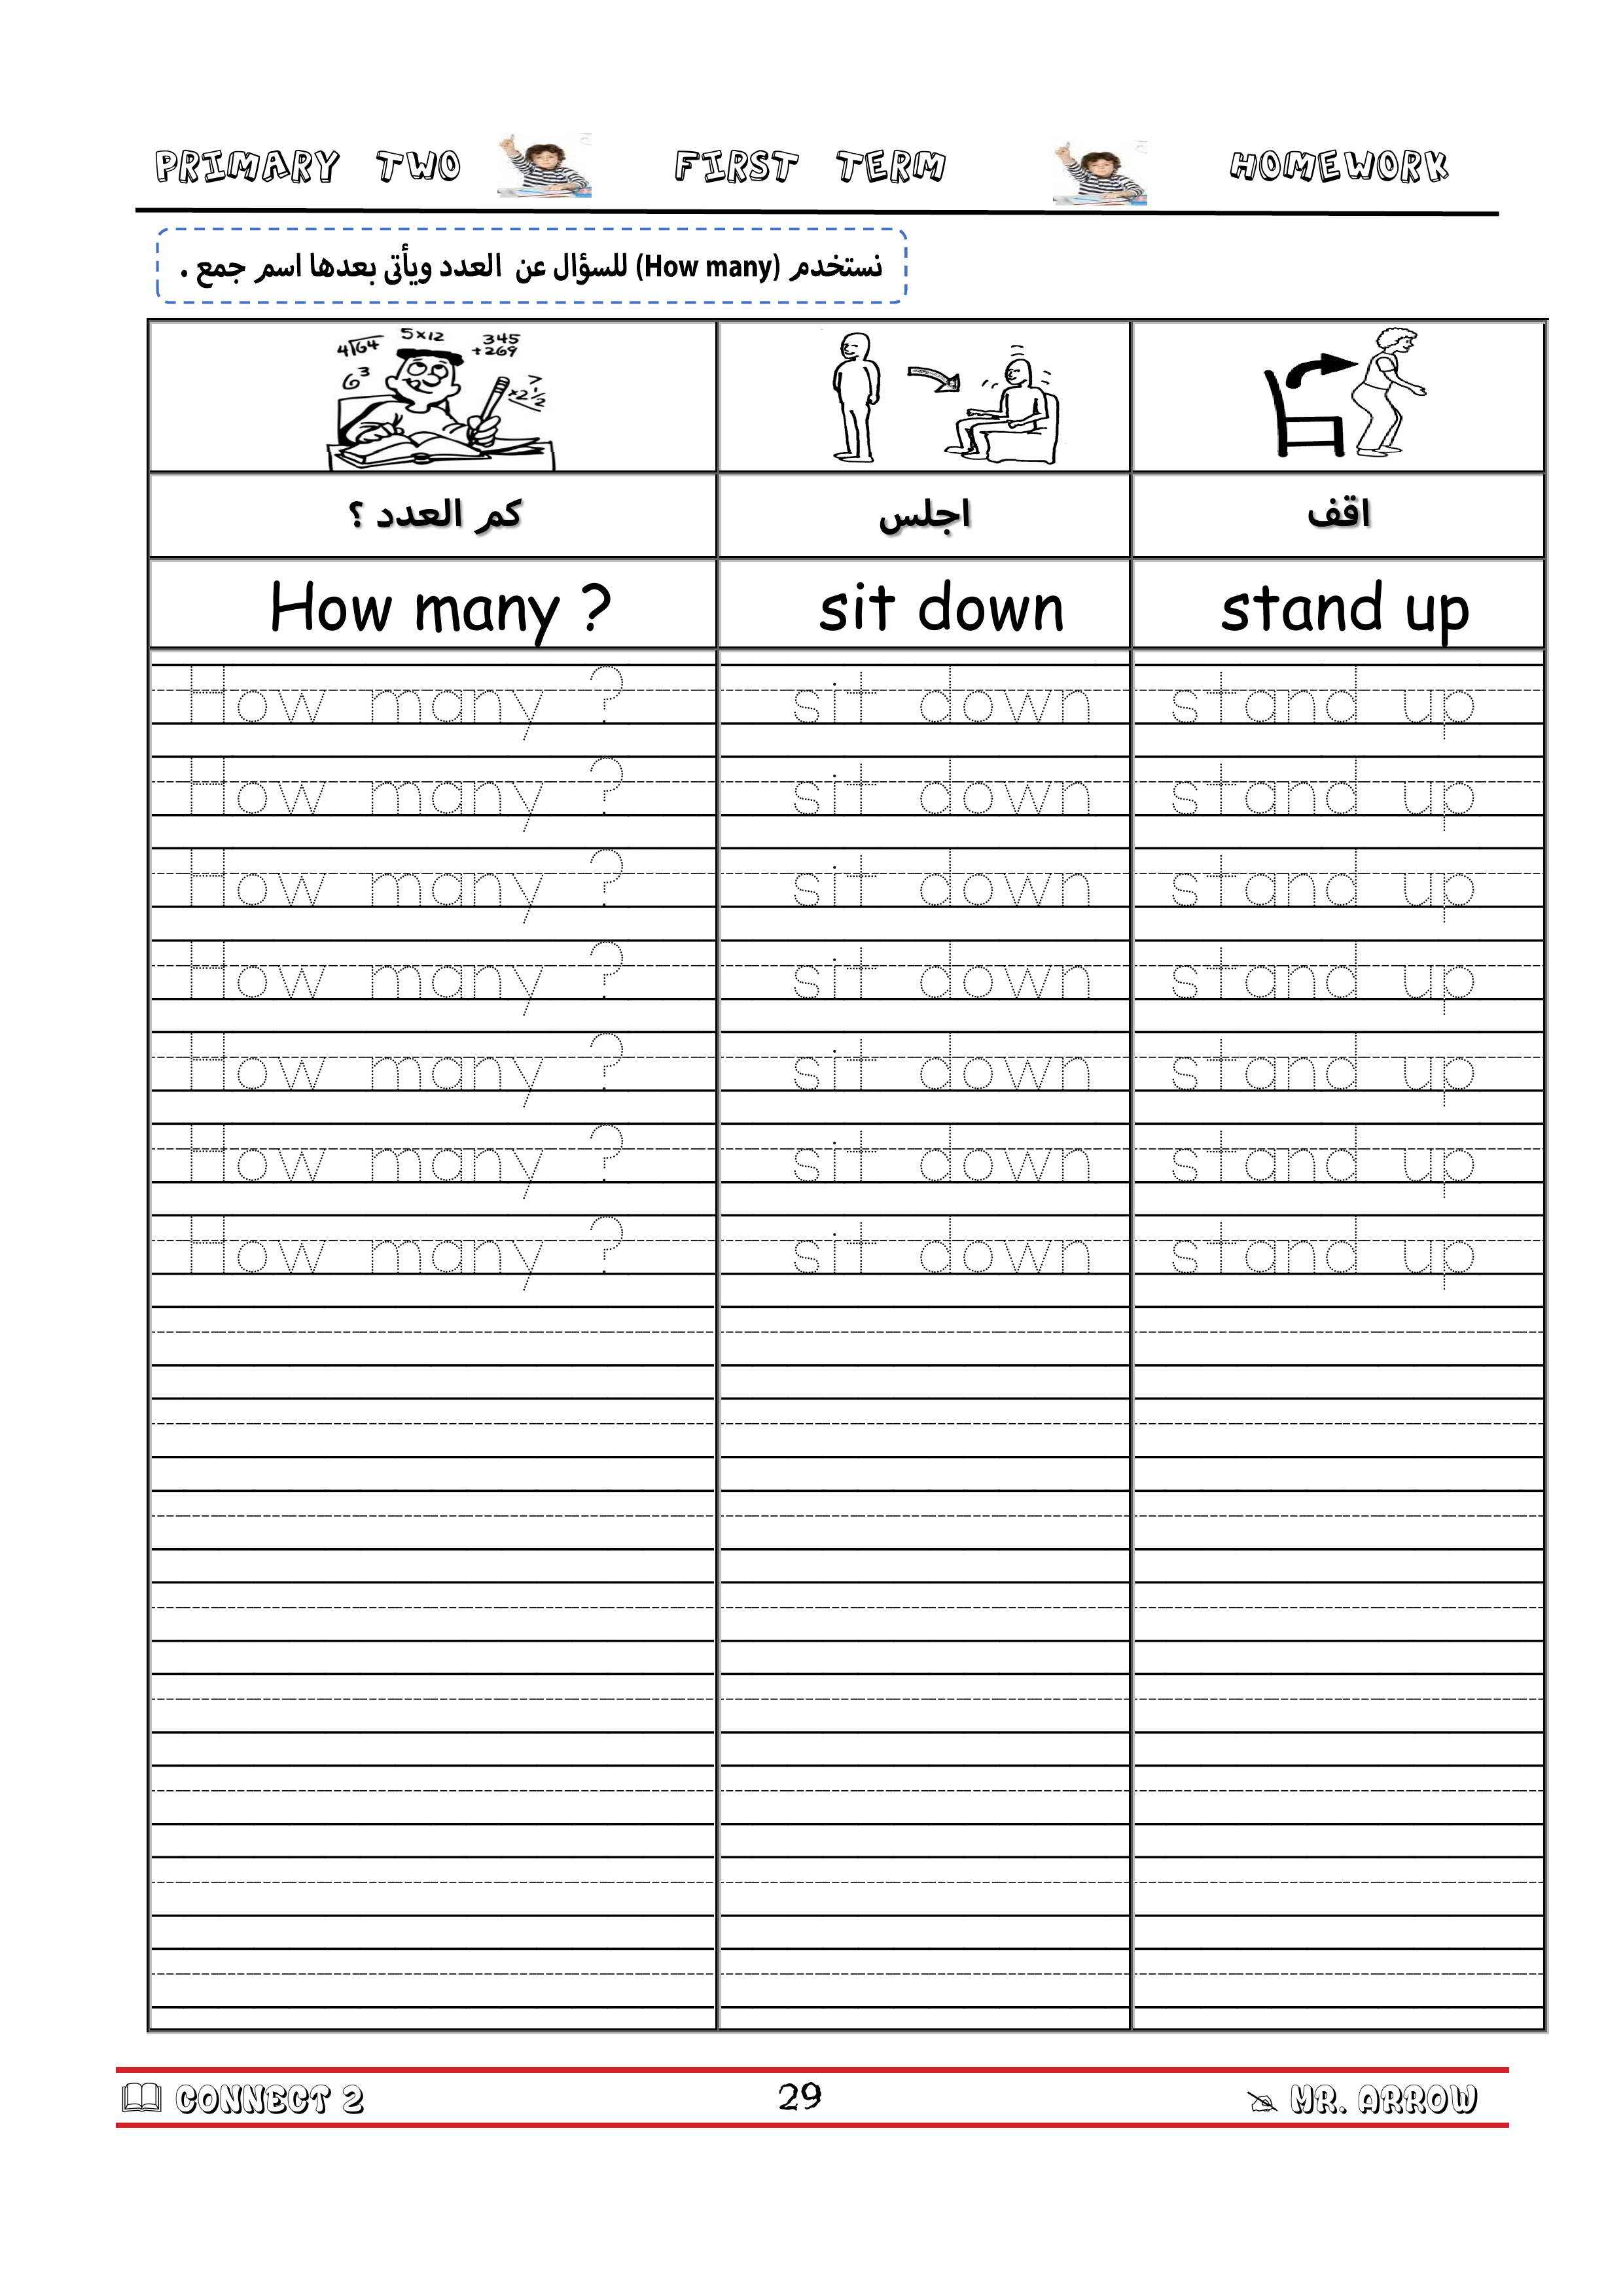 PRIMARY TWO FIRST TERM HOMEWORK
نستخدم (How many) للسؤال عن العدد ويأتى بعدها اسم جمع .
4)64 5x12 345
+269
6³ 7
x2½
كم العدد ؟ اجلس اقف
How many ? sit down stand up
How many ? sit down stand up
How many ? sit down stand up
How many ? sit down stand up
How many ? sit down stand up
How many ? sit down stand up
How many ? sit down stand up
How many ? sit down stand up
CONNECT 2 29 MR. ARROW